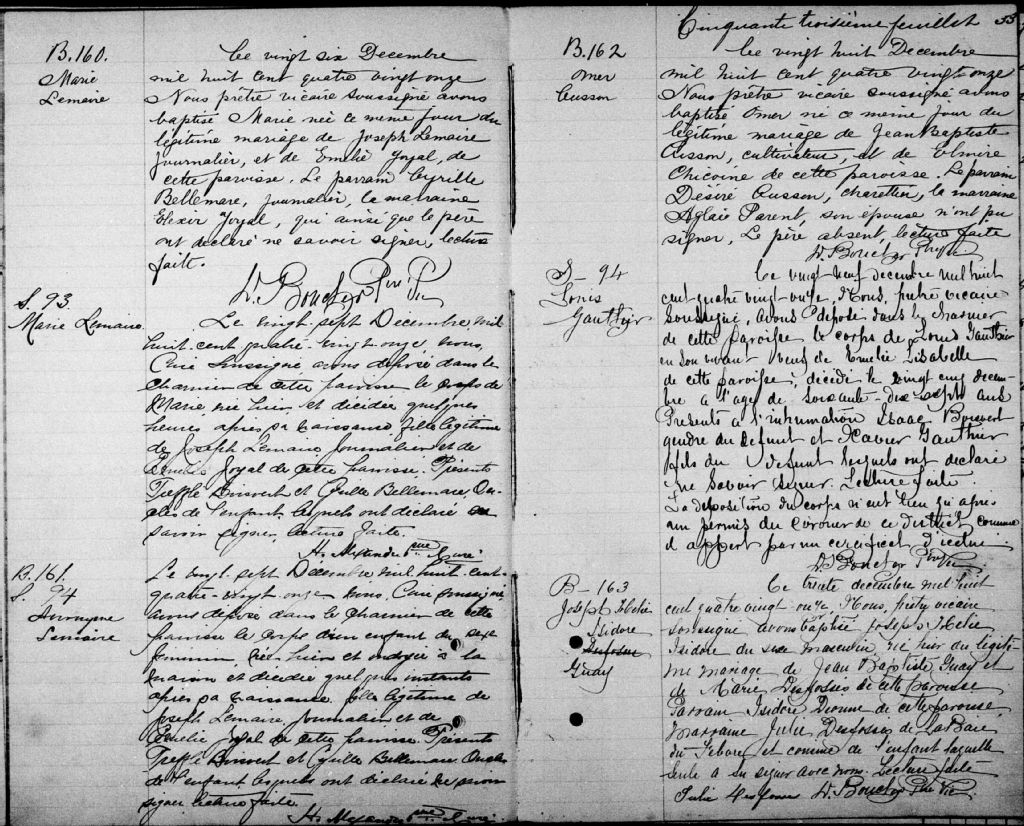 B.160.
Marie
Lemaire
Ce vingt six Decembre
mil huit cent quatre vingt onze
Nous prêtre vicaire soussigné avons
baptisé Marie née ce même jour du
légitime mariage de Joseph Lemaire
journalier, et de Emélie Joyal, de
cette paroisse. Le parrain Cyrille
Bellemare, journalier, la marraine
Elexir Joyal, qui ainsi que le père
ont déclaré ne savoir signer, lecture
faite.
S. 93
Marie Lemaire
Le vingt-sept Décembre mil
huit-cent quatre-vingt-onze nous,
Curé soussigné avons déposé dans le
charnier de cette paroisse le corps de
Marie née hier et décédée quelques
heures après sa naissance fille légitime
de Joseph Lemaire Journalier et de
Emélie Joyal de cette paroisse. Présents
Treffle Boisvert et Cyrille Bellemare On-
cles de l'enfant lesquels ont déclaré ne
savoir signer, lecture faite.
H. Alexandre ptre Curé
B.161.
S. 94
Anonyme
Lemaire
Le vingt-sept Décembre mil huit-cent-
quatre-vingt onze nous, Curé soussigné
avons déposé dans le charnier de cette
paroisse le corps d'un enfant du sexe
féminin, née hier et ondoyée à la
maison et décédée quelques instants
après sa naissance fille légitime de
Joseph Lemaire, Journalier et de
Emélie Joyal de cette paroisse. Présents
Treffle Boisvert et Cyrille Bellemare Oncles
de l'enfant lesquels ont déclaré ne savoir
signer lecture faite.
H. Alexandre ptre Curé
Cinquante troisième feuillet 53
B.162
Omer
Cusson
Ce vingt huit Decembre
mil huit cent quatre vingt onze
Nous prêtre vicaire soussigné avons
baptisé Omer né ce même jour du
légitime mariage de Jean Baptiste
Cusson, cultivateur, et de Elmire
Chicoine de cette paroisse. Le parrain
Désiré Cusson, charretier, la marraine
Aglaé Parent, son epouse n'ont pu
signer, Le père absent, lecture faite
S - 94
Louis
Gauthier
Ce vingt neuf decembre mil huit
cent quatre vingt onze, Nous, prêtre vicaire
soussigné, avons déposé dans le charnier
de cette paroisse le corps de Louis Gauthier
en son vivant veuf de Emélie Lisabelle
de cette paroisse, décédé le vingt cinq decem-
bre a l'age de soixante-dix sept ans
Présents a l'inhumation Isaac Boisvert
gendre du defunt et Xavier Gauthier
fils du defunt lesquels ont declaré
ne savoir signer. Lecture faite.
La deposition du corps n'a eu lieu qu'après
un permis du Coroner de ce district comme
il appert par un certificat
B - 163
Joseph Helie
Isidore
Guay
Ce trente decembre mil huit
cent quatre vingt onze, Nous, prêtre vicaire
soussigné avons baptisé Joseph Helie
Isidore du sexe masculin, né hier du légiti-
me mariage de Jean Baptiste Guay et
de Marie Desfossés de cette paroisse
Parrain Isidore Dionne de cette paroisse,
Marraine Julie Desfossés de La Baie
du Febvre et de l'enfant laquelle
seule a su signer avec nous. Lecture faite
Julie Desfossés